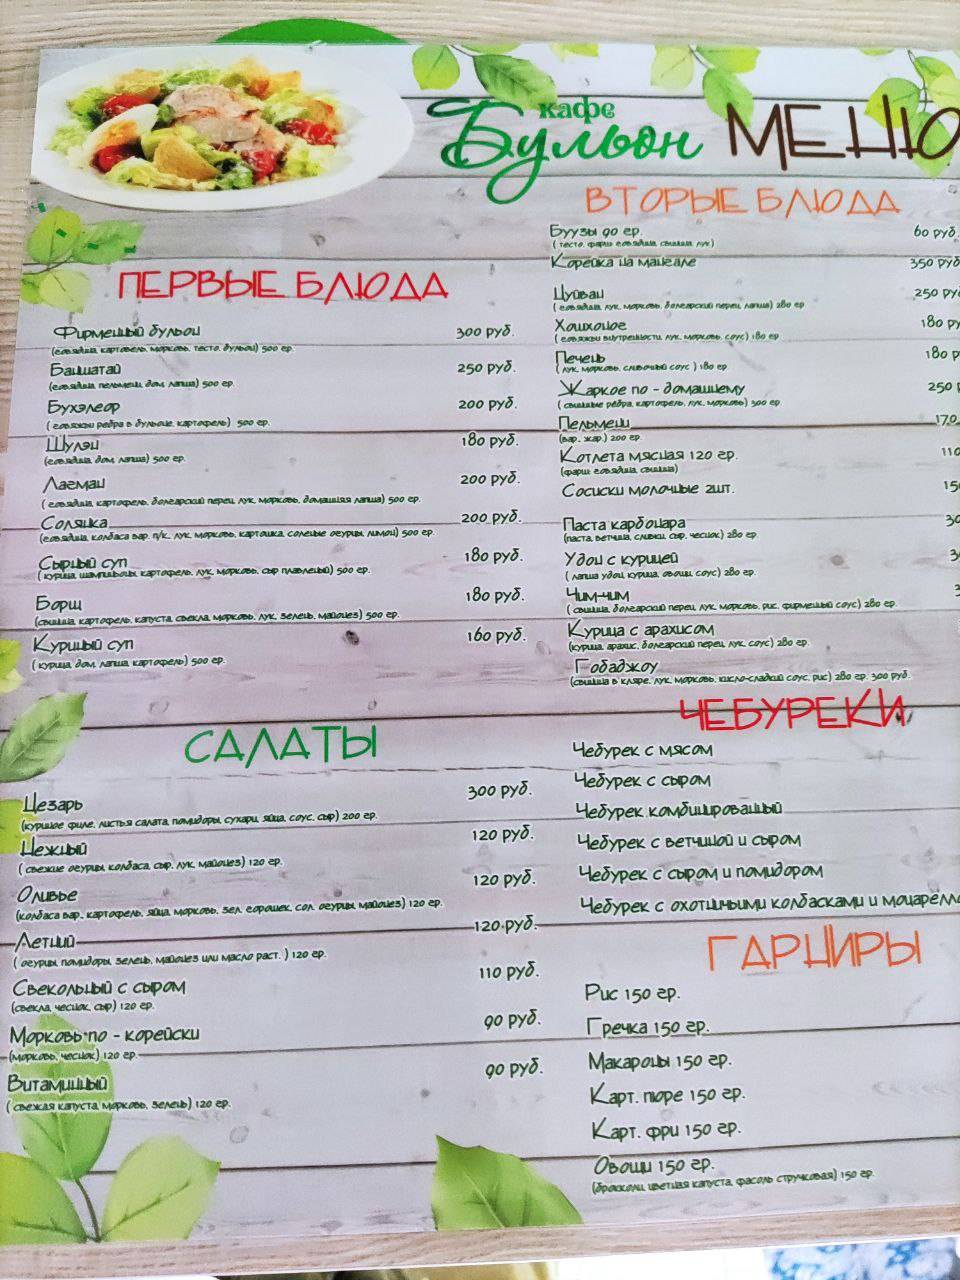 кафе
Бульон МЕНЮ
ПЕРВЫЕ БЛЮДА
Фирменный бульон 300 руб.
(говядина, картофель, морковь, тесто, бульон) 500 гр.
Баншатай 250 руб.
(говядина, пельмени, дом. лапша) 500 гр.
Бухэлеор 200 руб.
( говяжьи ребра в бульоне, картофель) 500 гр.
Шулэн 180 руб.
(говядина, дом. лапша) 500 гр.
Лагман 200 руб.
( говядина, картофель, болгарский перец, лук, морковь, домашняя лапша) 500 гр.
Солянка 200 руб.
(говядина, колбаса вар. п/к., лук, морковь, картошка, соленые огурцы, лимон) 500 гр.
Сырный суп 180 руб.
( курица, шампиньоны, картофель, лук, морковь, сыр плавленый) 500 гр.
Борщ 180 руб.
(свинина, картофель, капуста, свекла, морковь, лук, зелень, майонез) 500 гр.
Куриный суп 160 руб.
( курица, дом. лапша, картофель) 500 гр.
САЛАТЫ
Цезарь 300 руб.
(куриное филе, листья салата, помидоры, сухари, яйца, соус, сыр) 200 гр.
Нежный 120 руб.
( свежие огурцы, колбаса, сыр, лук, майонез) 120 гр.
Оливье 120 руб.
(колбаса вар., картофель, яйца, морковь, зел. горошек, сол. огурцы, майонез) 120 гр.
Летний 120 руб.
( огурцы, помидоры, зелень, майонез или масло раст. ) 120 гр.
Свекольный с сыром 110 руб.
(свекла, чеснок, сыр) 120 гр.
Морковь по - корейски 90 руб.
(морковь, чеснок) 120 гр.
Витаминный 90 руб.
( свежая капуста, морковь, зелень) 120 гр.
ВТОРЫЕ БЛЮДА
Буузы 90 гр. 60 руб.
( тесто, фарш говядина, свинина, лук)
Корейка на мангале 350 руб
Цуйван 250 руб
( говядина, лук, морковь, болгарский перец, лапша) 280 гр
Хошхоног 180 ру
( говяжьи внутренности, лук, морковь, соус) 180 гр
Печень 180 р
( лук, морковь, сливочный соус ) 180 гр
Жаркое по - домашнему 250
( свинные ребра, картофель, лук, морковь) 300 гр.
Пельмени 170
(вар., жар.) 200 гр.
Котлета мясная 120 гр. 110
(фарш: говядина, свинина)
Сосиски молочные 2шт. 15
Паста карбонара 30
(паста, ветчина, сливки, сыр, чеснок) 280 гр.
Удон с курицей
( лапша удон, курица, овощи, соус) 280 гр.
Чим-чим
( свинина, болгарский перец, лук, морковь, рис, фирменный соус) 280 гр.
Курица с арахисом
(курица, арахис, болгарский перец, лук, соус) 280 гр.
Гобаджоу
(свинина в кляре, лук, морковь, кисло-сладкий соус, рис) 280 гр. 300 руб.
ЧЕБУРЕКИ
Чебурек с мясом
Чебурек с сыром
Чебурек комбинированный
Чебурек с ветчиной и сыром
Чебурек с сыром и помидором
Чебурек с охотничьими колбасками и моцарелло
ГАРНИРЫ
Рис 150 гр.
Гречка 150 гр.
Макароны 150 гр.
Карт. пюре 150 гр.
Карт. фри 150 гр.
Овощи 150 гр.
(брокколи, цветная капуста, фасоль стручковая) 150 гр.